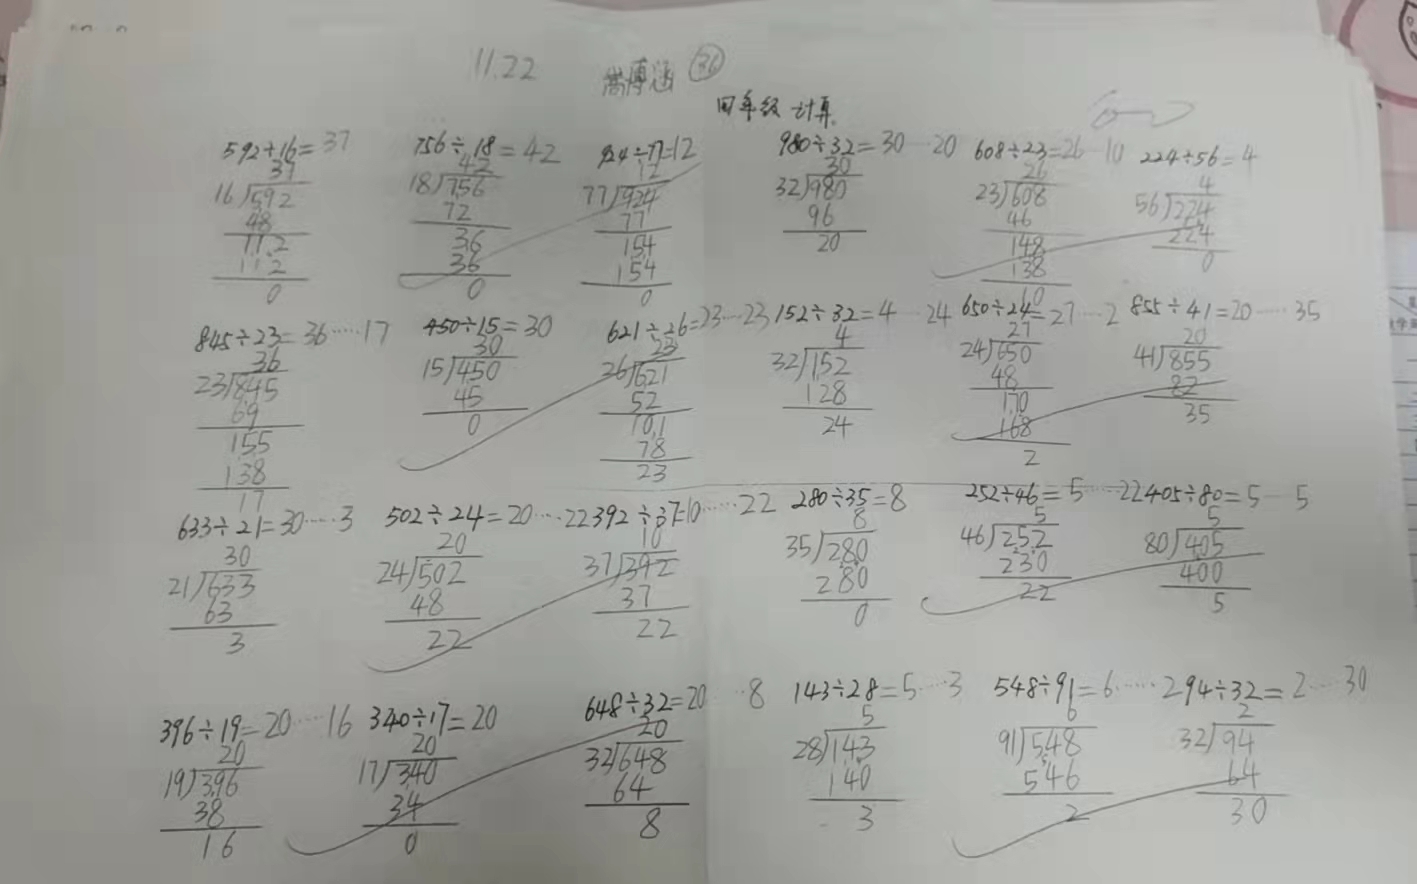 11.22 博涵 36
四年级 计算
592÷16=37 756÷18=42 924÷77=12 980÷32=30 20 608÷23=26 10 224÷56=4
37 42 12 30 26 4
16 592 18 756 77 924 32 980 23 608 56 224
48 72 77 96 46 224
112 36 154 20 148 0
112 36 154 138
0 0 0 10
845÷23=36……17 450÷15=30 621÷26=23……23 152÷32=4 24 650÷24=27……2 855÷41=20……35
36 30 23 4 27 20
23 845 15 450 26 621 32 152 24 650 41 855
69 45 52 128 48 82
155 0 101 24 170 35
138 78 168
17 23 2
633÷21=30……3 502÷24=20……22 392÷37=10……22 280÷35=8 252÷46=5……22 405÷80=5……5
30 20 10 8 5 5
21 633 24 502 37 392 35 280 46 252 80 405
63 48 37 280 230 400
3 22 22 0 22 5
396÷19=20……16 340÷17=20 648÷32=20……8 143÷28=5……3 548÷91=6……2 94÷32=2……30
20 20 20 5 6 2
19 396 17 340 32 648 28 143 91 548 32 94
38 34 64 140 546 64
16 0 8 3 2 30